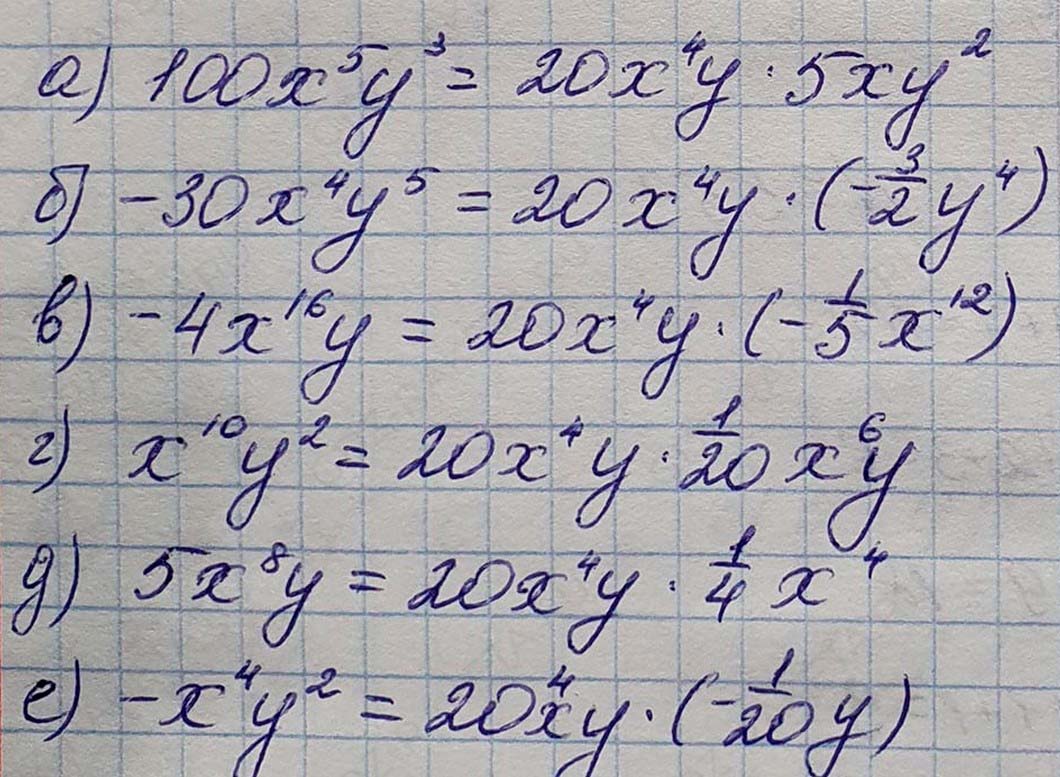 а) 100x⁵y³ = 20x⁴y · 5xy²
б) -30x⁴y⁵ = 20x⁴y · (-3/2 y⁴)
в) -4x¹⁶y = 20x⁴y · (-1/5 x¹²)
г) x¹⁰y² = 20x⁴y · 1/20 x⁶y
д) 5x⁸y = 20x⁴y · 1/4 x⁴
е) -x⁴y² = 20x⁴y · (-1/20 y)